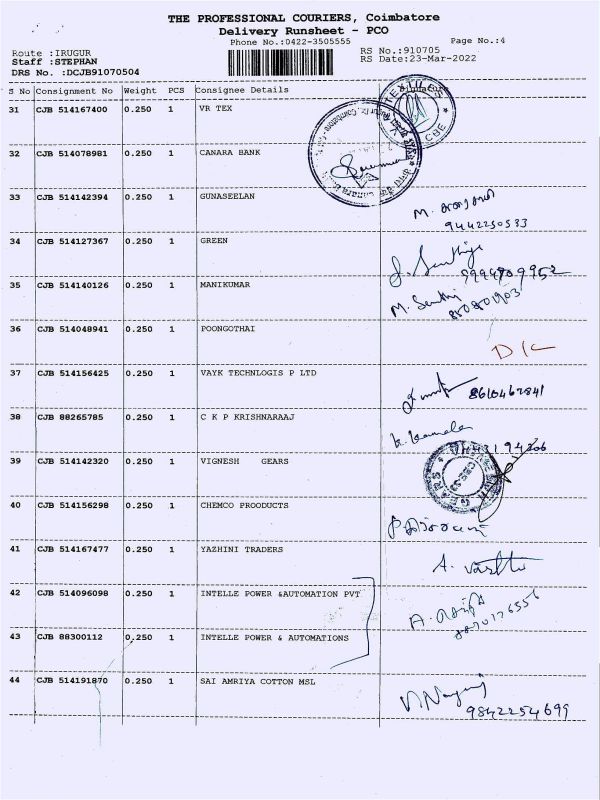 THE PROFESSIONAL COURIERS, Coimbatore
Delivery Runsheet - PCO
Phone No.:0422-3505555 Page No.:4
Route :IRUGUR RS No.:910705
Staff :STEPHAN RS Date:23-Mar-2022
DRS No. :DCJB91070504
S No Consignment No Weight PCS Consignee Details Signature
31 CJB 514167400 0.250 1 VR TEX
32 CJB 514078981 0.250 1 CANARA BANK
33 CJB 514142394 0.250 1 GUNASEELAN M.
9442250533
34 CJB 514127367 0.250 1 GREEN
35 CJB 514140126 0.250 1 MANIKUMAR
36 CJB 514048941 0.250 1 POONGOTHAI D/C
37 CJB 514156425 0.250 1 VAYK TECHNLOGIS P LTD 8610462841
38 CJB 88265785 0.250 1 C K P KRISHNARAAJ
39 CJB 514142320 0.250 1 VIGNESH GEARS
40 CJB 514156298 0.250 1 CHEMCO PROODUCTS
41 CJB 514167477 0.250 1 YAZHINI TRADERS
42 CJB 514096098 0.250 1 INTELLE POWER &AUTOMATION PVT
43 CJB 88300112 0.250 1 INTELLE POWER & AUTOMATIONS
44 CJB 514191870 0.250 1 SAI AMRIYA COTTON MSL
9842254699